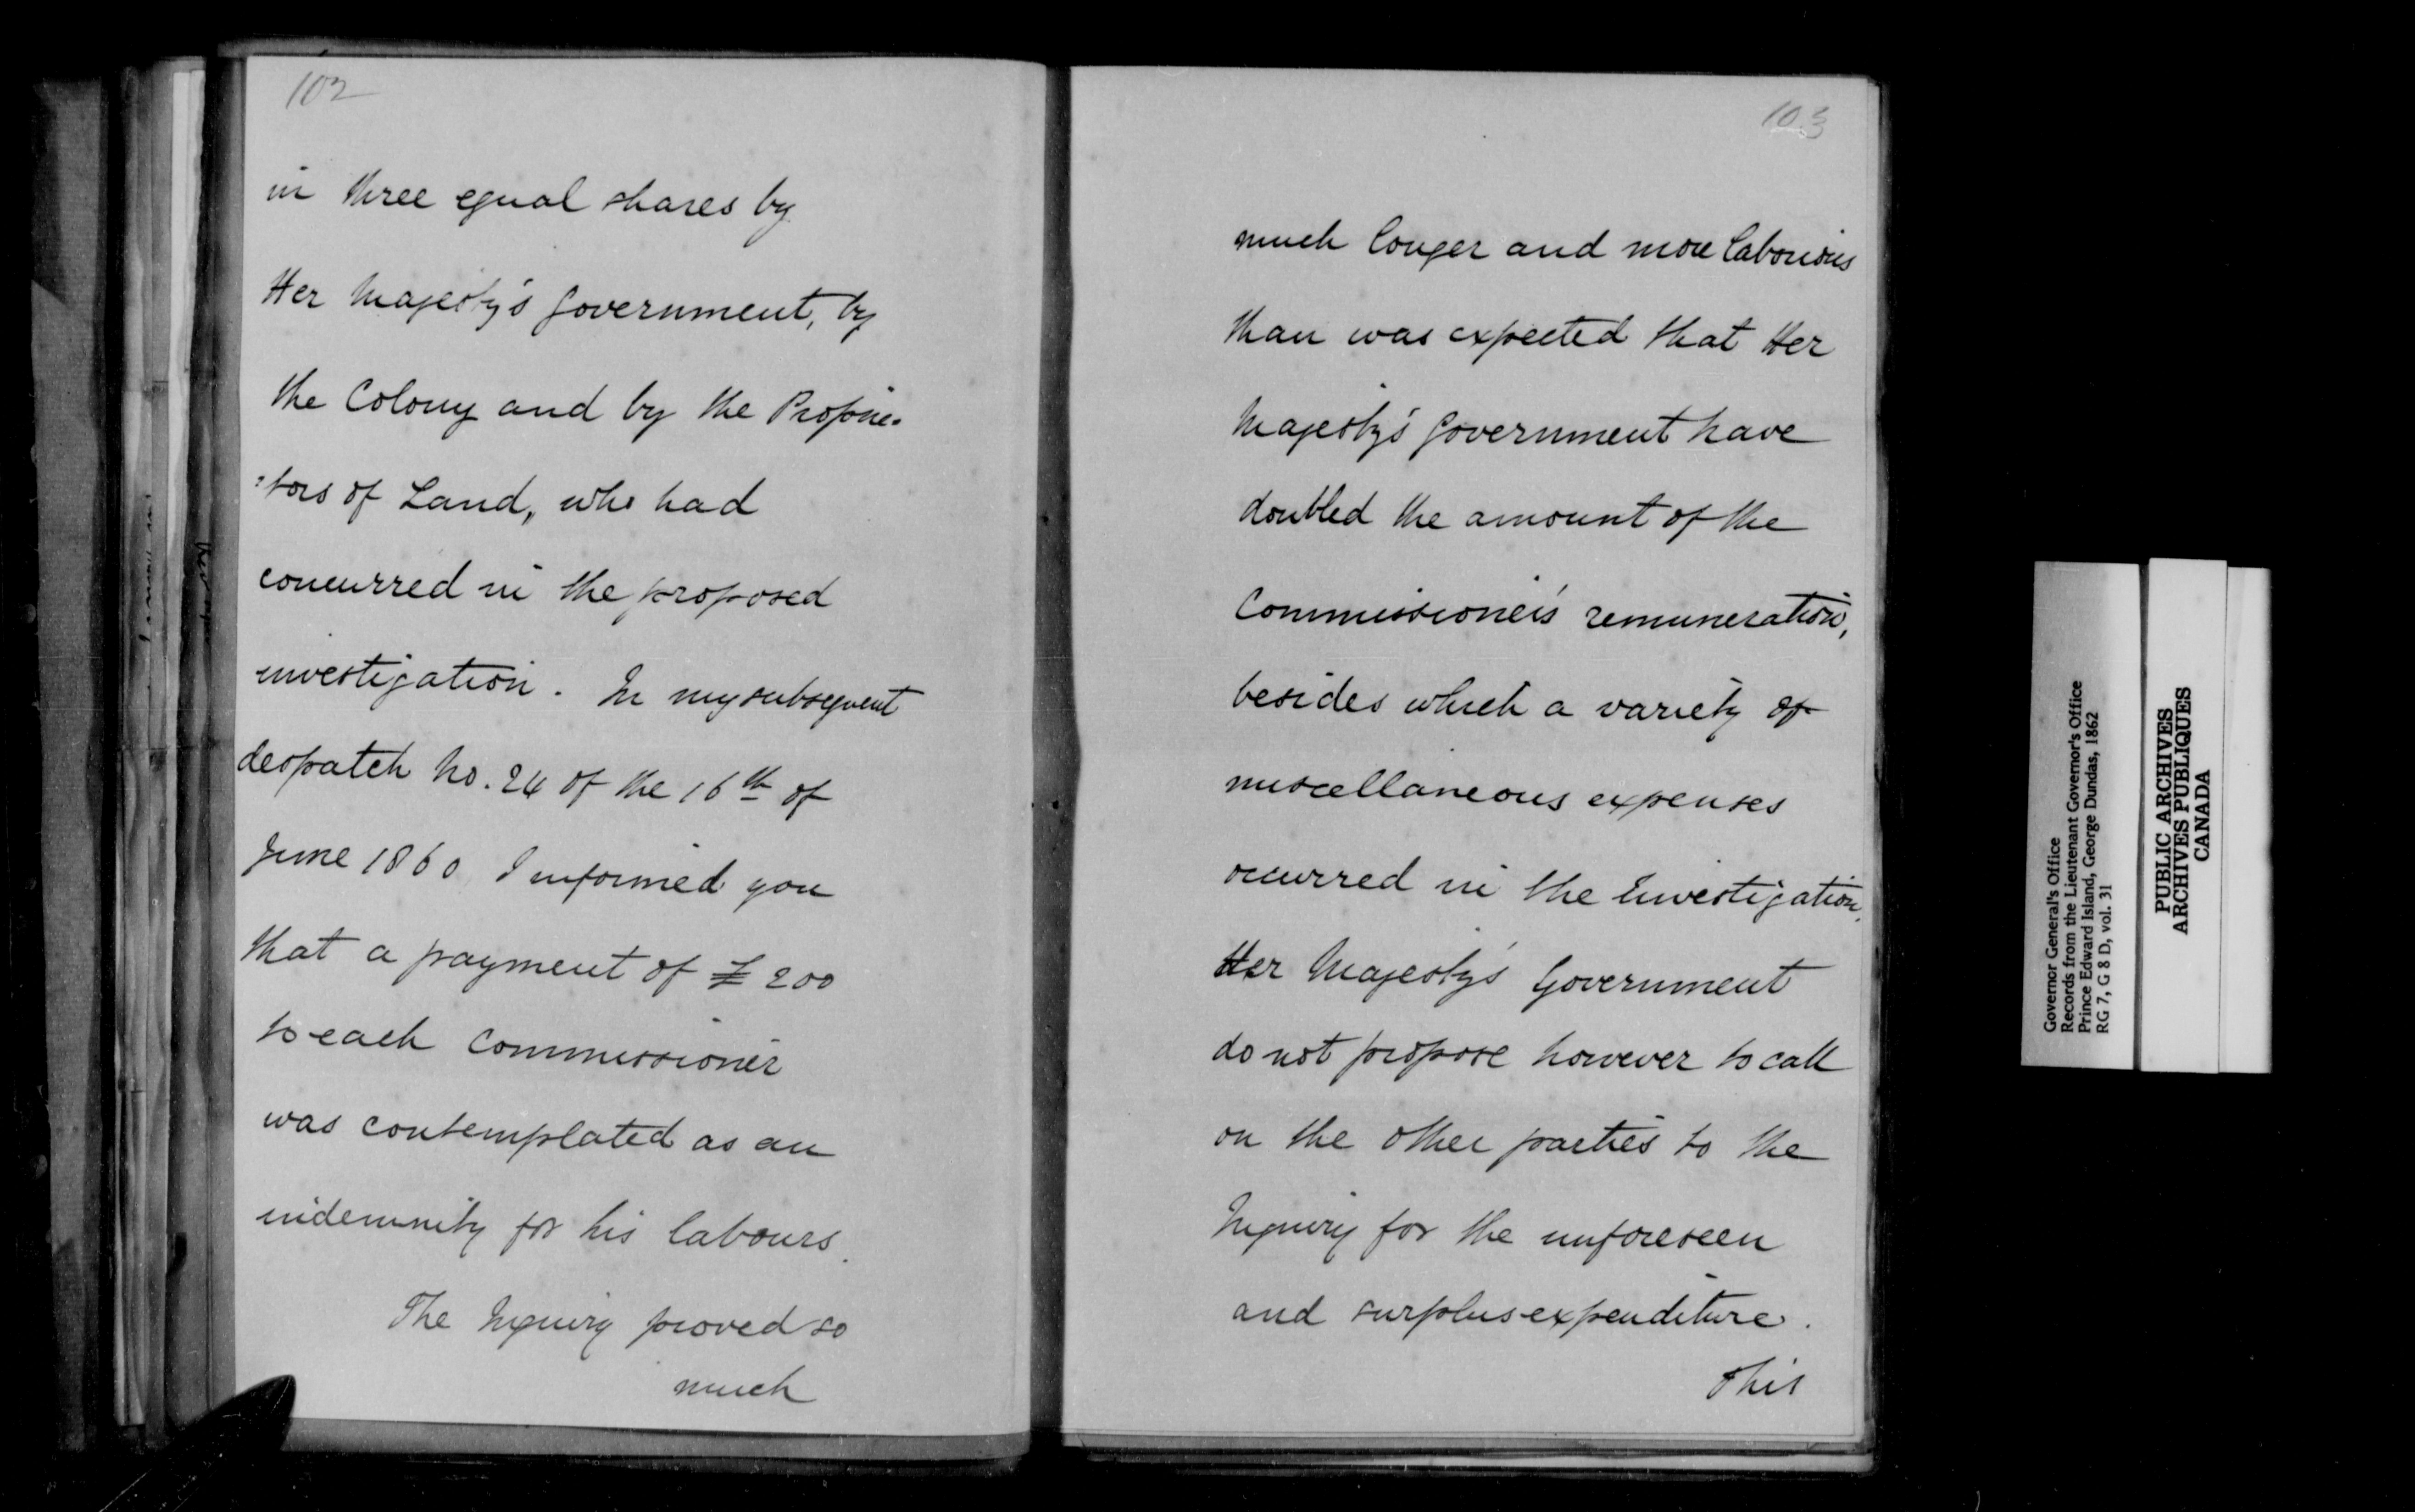 102
in three equal shares by
Her Majesty's Government, by
the Colony and by the Proprie-
:tors of Land, who had
concurred in the proposed
investigation. In my subsequent
despatch No. 24 of the 16th of
June 1860 I informed you
that a payment of £200
to each Commissioner
was contemplated as an
indemnity for his labours.
The Inquiry proved so
much
103
much longer and more laborious
than was expected that Her
Majesty's Government have
doubled the amount of the
Commissioner's remuneration,
besides which a variety of
miscellaneous expenses
occurred in the Investigation.
Her Majesty's Government
do not propose however to call
on the other parties to the
Inquiry for the unforeseen
and surplus expenditure.
This
Governor General's Office
Records from the Lieutenant Governor's Office
Prince Edward Island, George Dundas, 1862
RG 7, G 8 D, vol. 31
PUBLIC ARCHIVES
ARCHIVES PUBLIQUES
CANADA